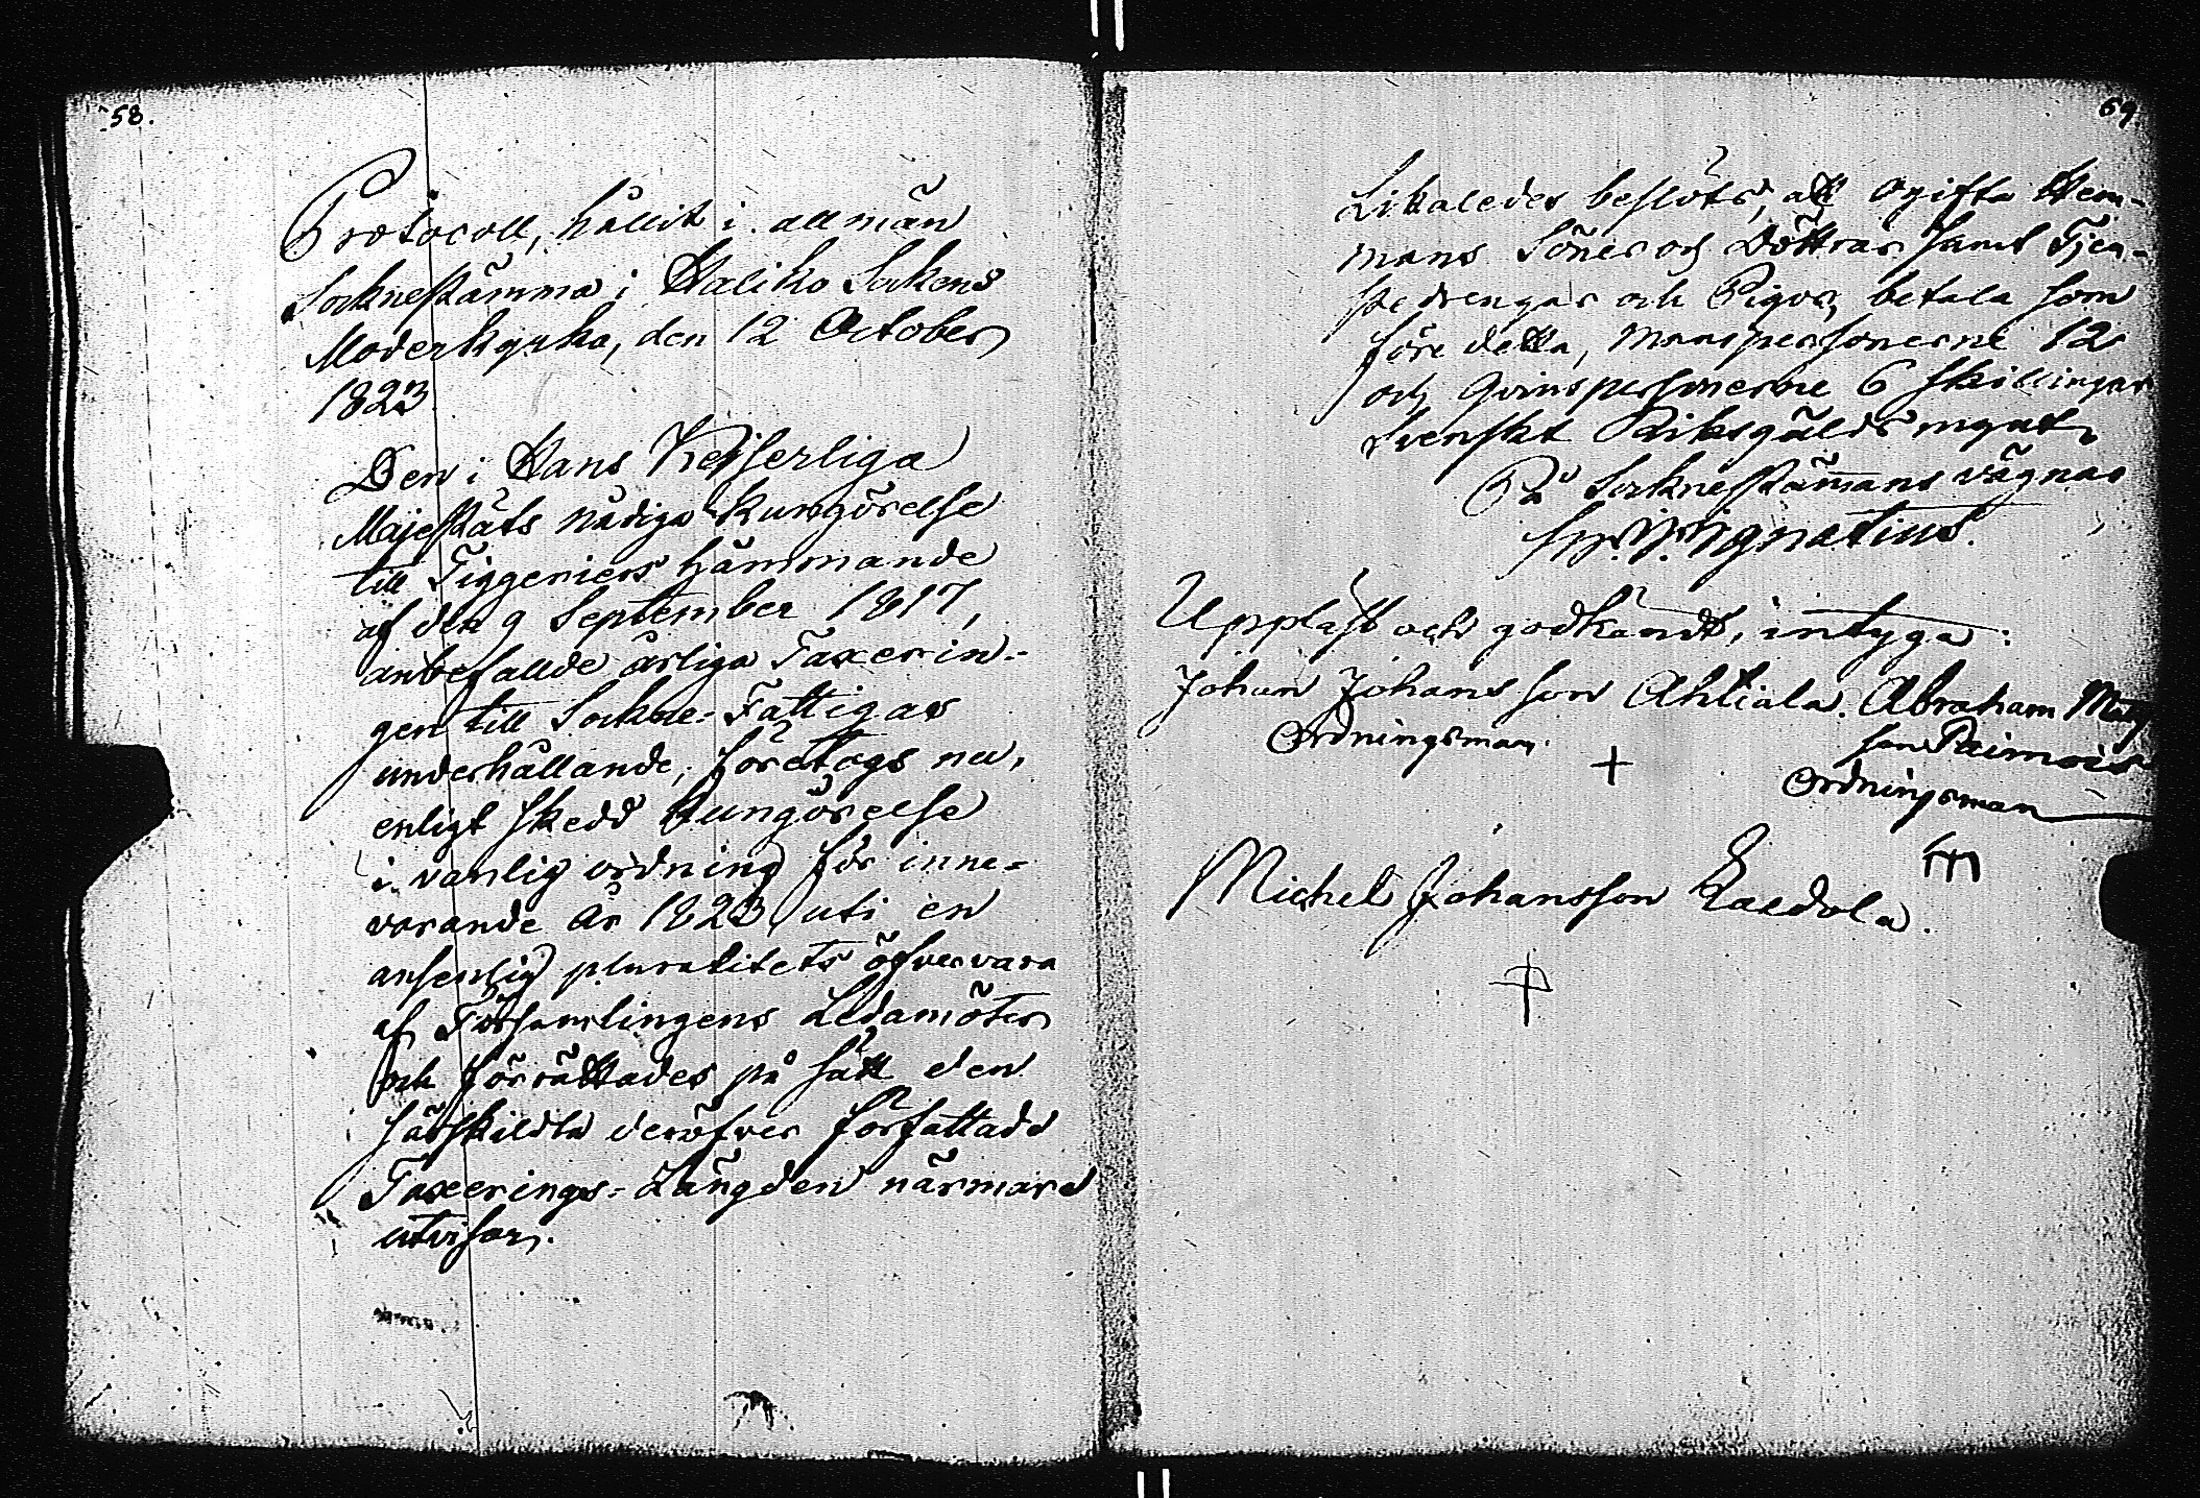 58.
Protocoll, hållit i allmän
Socknestämma i Haliko Sockens
Moderkyrka, den 12 October
1823
Den i Hans Kejserliga
Majestäts nådiga Kungörelse
till Tiggeriers hämmande
af den 9 September 1817,
anbefallde årliga Taxerin-
gen till Sockne-Fattigas
underhållande, företogs nu,
enligt skedd Kungörelse
i vanlig ordning för inne-
varande år 1823 uti en
ansenlig pluralitets öfvervara
af Församlingens Ledamöter
och förrättades på sätt den
särskildta deröfver författade
Taxerings-Längden närmare
utvisar.
59
Likaledes beslöts, att ogifta Hem-
mans Söner och Döttrar samt Tjen-
ste drengar och Pigor, betala som
före detta, manspersonerne 12
och Qvinspersonerne 6 skillingar
Svenskt Riksgälds mynt.
På Sockneståmans vägnar
Ignatius.
Uppläst och godkändt, intyga:
Johan Johansson Ahtiala. Abraham
Ordningsman. son Paimois
+ Ordningsman
Michel Johansson